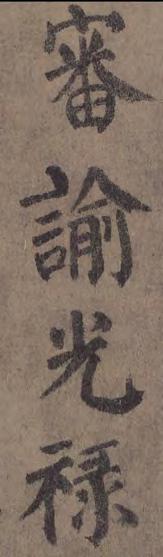 審諭光祿